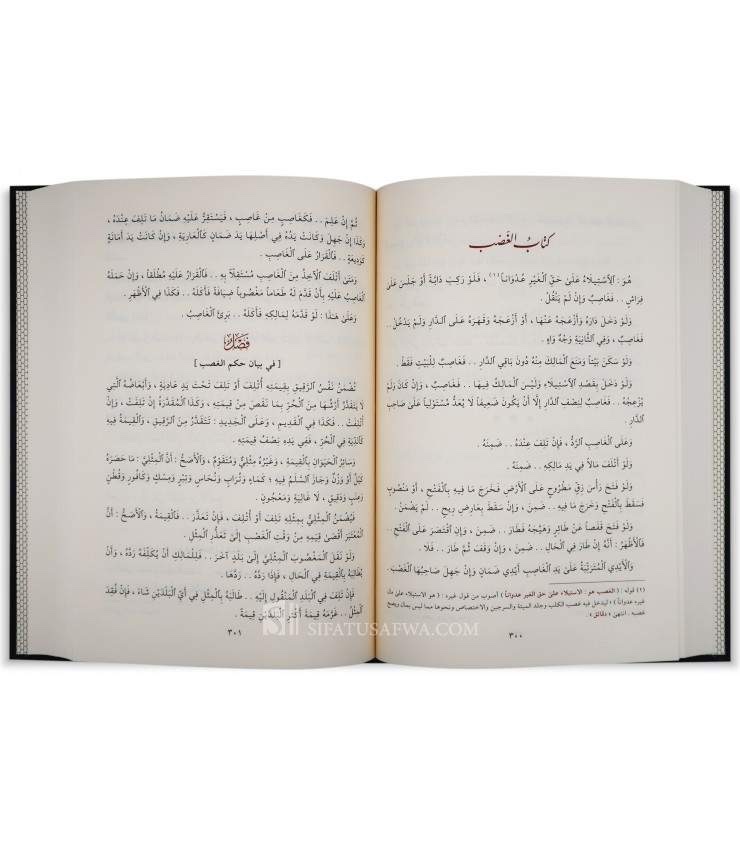 كتاب الغصب
هُوَ : ٱلِاسْتِيلَاءُ عَلَىٰ حَقِّ ٱلْغَيْرِ عُدْوَاناً (١) ، فَلَوْ رَكِبَ دَابَّةً أَوْ جَلَسَ عَلَىٰ
فِرَاشٍ . . فَغَاصِبٌ وَإِنْ لَمْ يَنْقُلْ .
وَلَوْ دَخَلَ دَارَهُ وَأَزْعَجَهُ عَنْهَا ، أَوْ أَزْعَجَهُ وَقَهَرَهُ عَلَى ٱلدَّارِ وَلَمْ يَدْخُلْ . .
فَغَاصِبٌ ، وَفِي ٱلثَّانِيَةِ وَجْهٌ وَاهٍ .
وَلَوْ سَكَنَ بَيْتاً وَمَنَعَ ٱلْمَالِكَ مِنْهُ دُونَ بَاقِي ٱلدَّارِ . . فَغَاصِبٌ لِلْبَيْتِ فَقَطْ .
وَلَوْ دَخَلَ بِقَصْدِ ٱلِاسْتِيلَاءِ وَلَيْسَ ٱلْمَالِكُ فِيهَا . . فَغَاصِبٌ ، وَإِنْ كَانَ وَلَمْ
يُزْعِجْهُ . . فَغَاصِبٌ لِنِصْفِ ٱلدَّارِ إِلَّا أَنْ يَكُونَ ضَعِيفاً لَا يُعَدُّ مُسْتَوْلِياً عَلَىٰ صَاحِبِ
ٱلدَّارِ .
وَعَلَى ٱلْغَاصِبِ ٱلرَّدُّ ، فَإِنْ تَلِفَ عِنْدَهُ . . ضَمِنَهُ .
وَلَوْ أَتْلَفَ مَالاً فِي يَدِ مَالِكِهِ . . ضَمِنَهُ .
وَلَوْ فَتَحَ رَأْسَ زِقٍّ مَطْرُوحٍ عَلَى ٱلْأَرْضِ فَخَرَجَ مَا فِيهِ بِٱلْفَتْحِ ، أَوْ مَنْصُوبٍ
فَسَقَطَ بِٱلْفَتْحِ وَخَرَجَ مَا فِيهِ . . ضَمِنَ ، وَإِنْ سَقَطَ بِعَارِضِ رِيحٍ . . لَمْ يَضْمَنْ .
وَلَوْ فَتَحَ قَفَصاً عَنْ طَائِرٍ وَهَيَّجَهُ فَطَارَ . . ضَمِنَ ، وَإِنِ ٱقْتَصَرَ عَلَى ٱلْفَتْحِ . .
فَٱلْأَظْهَرُ : أَنَّهُ إِنْ طَارَ فِي ٱلْحَالِ . . ضَمِنَ ، وَإِنْ وَقَفَ ثُمَّ طَارَ . . فَلَا .
وَٱلْأَيْدِي ٱلْمُتَرَتِّبَةُ عَلَىٰ يَدِ ٱلْغَاصِبِ أَيْدِي ضَمَانٍ وَإِنْ جَهِلَ صَاحِبُهَا ٱلْغَصْبَ .
(١) قوله : ( الغصب هو : الاستيلاء على حق الغير عدواناً ) أصوب من قول غيره : ( هو الاستيلاء على مال
غيره عدواناً ) ليدخل فيه غصب الكلب وجلد الميتة والسرجين والاختصاص ونحوها مما ليس بمال ويصح
غصبه . انتهى « دقائق » .
٣٠٠
ثُمَّ إِنْ عَلِمَ . . فَكَغَاصِبٍ مِنْ غَاصِبٍ ، فَيَسْتَقِرُّ عَلَيْهِ ضَمَانُ مَا تَلِفَ عِنْدَهُ ،
وَكَذَا إِنْ جَهِلَ وَكَانَتْ يَدُهُ فِي أَصْلِهَا يَدَ ضَمَانٍ كَٱلْعَارِيَةِ ، وَإِنْ كَانَتْ يَدَ أَمَانَةٍ
كَوَدِيعَةٍ . . فَٱلْقَرَارُ عَلَى ٱلْغَاصِبِ .
وَمَتَىٰ أَتْلَفَ ٱلْآخِذُ مِنَ ٱلْغَاصِبِ مُسْتَقِلّاً بِهِ . . فَٱلْقَرَارُ عَلَيْهِ مُطْلَقاً ، وَإِنْ حَمَلَهُ
ٱلْغَاصِبُ عَلَيْهِ بِأَنْ قَدَّمَ لَهُ طَعَاماً مَغْصُوباً ضِيَافَةً فَأَكَلَهُ . . فَكَذَا فِي ٱلْأَظْهَرِ .
وَعَلَىٰ هَـٰذَا : لَوْ قَدَّمَهُ لِمَالِكِهِ فَأَكَلَهُ . . بَرِئَ ٱلْغَاصِبُ .
فصل
[ في بيان حكم الغصب ]
تُضْمَنُ نَفْسُ ٱلرَّقِيقِ بِقِيمَتِهِ أُتْلِفَ أَوْ تَلِفَ تَحْتَ يَدٍ عَادِيَةٍ ، وَأَبْعَاضُهُ ٱلَّتِي
لَا يَتَقَدَّرُ أَرْشُهَا مِنَ ٱلْحُرِّ بِمَا نَقَصَ مِنْ قِيمَتِهِ ، وَكَذَا ٱلْمُقَدَّرَةُ إِنْ تَلِفَتْ ، وَإِنْ
أُتْلِفَتْ . . فَكَذَا فِي ٱلْقَدِيمِ ، وَعَلَى ٱلْجَدِيدِ : تَتَقَدَّرُ مِنَ ٱلرَّقِيقِ ، وَٱلْقِيمَةُ فِيهِ
كَٱلدِّيَةِ فِي ٱلْحُرِّ ، فَفِي يَدِهِ نِصْفُ قِيمَتِهِ .
وَسَائِرُ ٱلْحَيَوَانِ بِٱلْقِيمَةِ ، وَغَيْرُهُ مِثْلِيٌّ وَمُتَقَوِّمٌ ، وَٱلْأَصَحُّ : أَنَّ ٱلْمِثْلِيَّ : مَا حَصَرَهُ
كَيْلٌ أَوْ وَزْنٌ وَجَازَ ٱلسَّلَمُ فِيهِ ؛ كَمَاءٍ وَتُرَابٍ وَنُحَاسٍ وَتِبْرٍ وَمِسْكٍ وَكَافُورٍ وَقُطْنٍ
وَعِنَبٍ وَدَقِيقٍ ، لَا غَالِيَةٍ وَمَعْجُونٍ .
فَيُضْمَنُ ٱلْمِثْلِيُّ بِمِثْلِهِ تَلِفَ أَوْ أُتْلِفَ ، فَإِنْ تَعَذَّرَ . . فَٱلْقِيمَةُ ، وَٱلْأَصَحُّ : أَنَّ
ٱلْمُعْتَبَرَ أَقْصَىٰ قِيَمِهِ مِنْ وَقْتِ ٱلْغَصْبِ إِلَىٰ تَعَذُّرِ ٱلْمِثْلِ .
وَلَوْ نَقَلَ ٱلْمَغْصُوبَ ٱلْمِثْلِيَّ إِلَىٰ بَلَدٍ آخَرَ . . فَلِلْمَالِكِ أَنْ يُكَلِّفَهُ رَدَّهُ ، وَأَنْ
يُطَالِبَهُ بِٱلْقِيمَةِ فِي ٱلْحَالِ ، فَإِذَا رَدَّهُ . . رَدَّهَا .
فَإِنْ تَلِفَ فِي ٱلْبَلَدِ ٱلْمَنْقُولِ إِلَيْهِ . . طَالَبَهُ بِٱلْمِثْلِ فِي أَيِّ ٱلْبَلَدَيْنِ شَاءَ ، فَإِنْ فُقِدَ
ٱلْمِثْلُ . . غَرَّمَهُ قِيمَةَ أَكْثَرِ ٱلْبَلَدَيْنِ قِيمَةً .
٣٠١
SIFATUSAFWA.COM